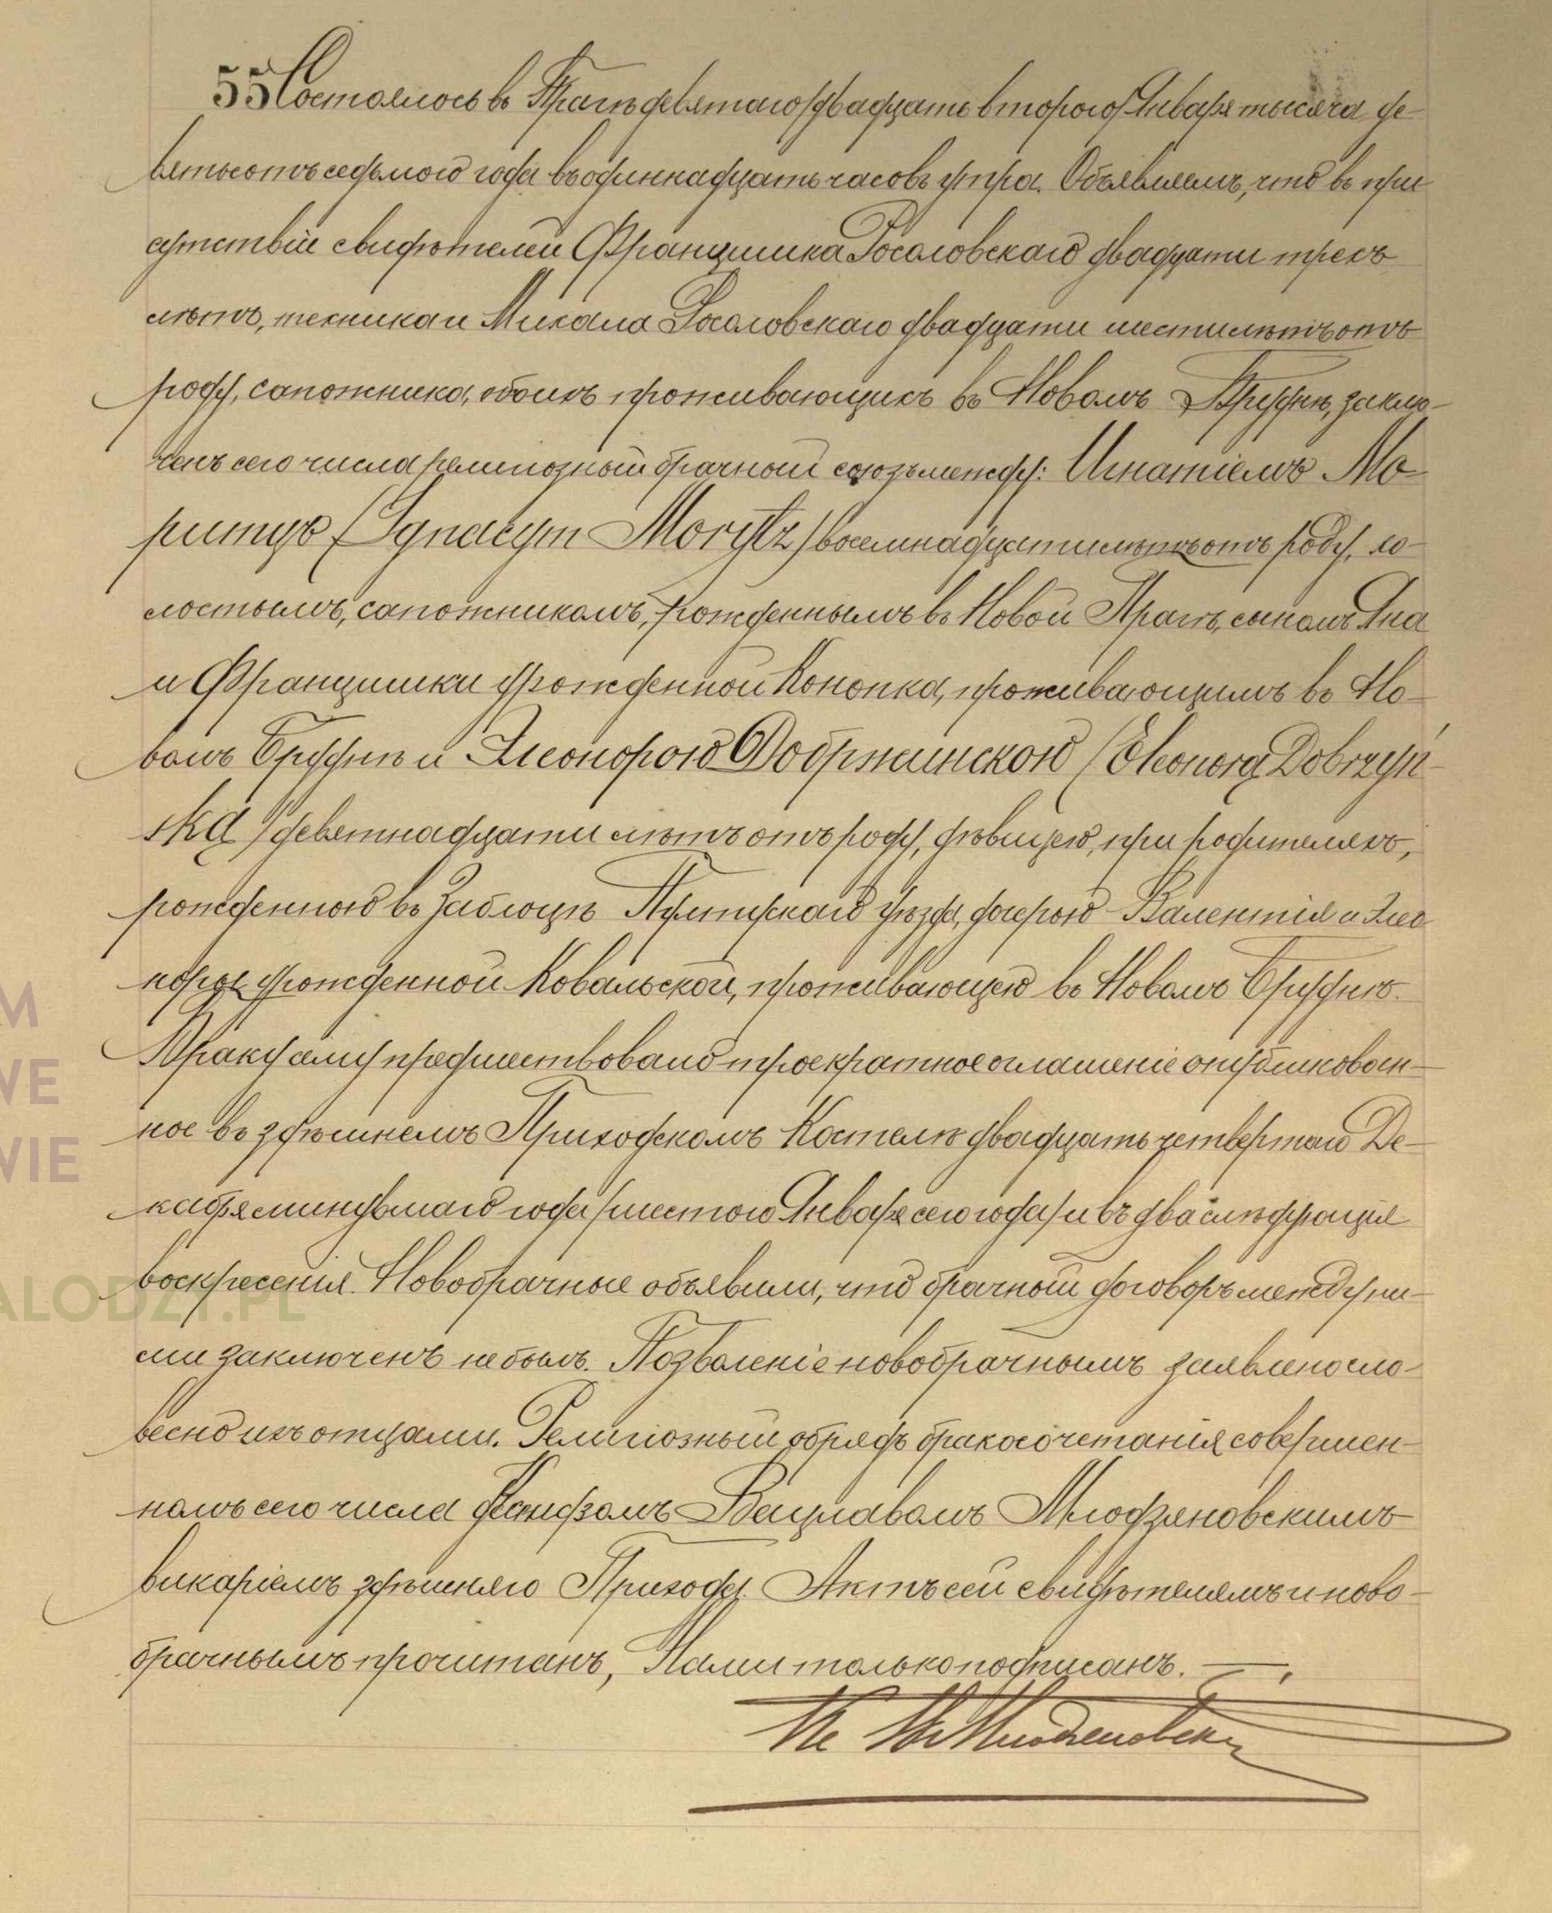 55 Состоялось въ Прагѣ девятаго /двадцать втораго/ Января тысяча де-
вятьсотъ седьмого года въ одиннадцать часовъ утра. Объявляемъ, что въ при
сутствіи свидѣтелей Францишка Росоловскаго двадцати трехъ
лѣтъ, техника и Михала Росоловскаго двадцати шести лѣтъ отъ
роду, сапожника, обоихъ проживающихъ въ Новомъ Бруднѣ, заклю-
ченъ сего числа религіозный брачный союзъ между: Игнатіемъ Мо-
ритцъ (Ignacym Morytz) восемнадцати лѣтъ отъ роду, хо-
лостымъ, сапожникомъ, рожденнымъ въ Новой Прагѣ, сыномъ Яна
и Францишки урожденной Конопка, проживающимъ въ Но-
вомъ Бруднѣ и Элеонорою Добржинскою (Eleonorą Dobrzyń-
ską) девятнадцати лѣтъ отъ роду, дѣвицею, при родителяхъ,
рожденною въ Заблоцѣ Пултускаго уѣзда, дочерью Валентія и Элео
норы урожденной Ковальской, проживающею въ Новомъ Бруднѣ.
Браку сему предшествовало троекратное оглашеніе опубликован-
ное въ здѣшнемъ Приходскомъ Костелѣ двадцать четвертаго Де-
кабря минувшаго года /шестого Января сего года/ и въ два слѣдующія
воскресенія. Новобрачные объявили, что брачный договоръ между ни-
ми заключенъ не былъ. Позволеніе новобрачнымъ заявлено сло-
весно ихъ отцами. Религіозный обрядъ бракосочетанія совершен-
номъ сего числа Ксендзомъ Вацлавомъ Млодзяновскимъ
викаріемъ здѣшняго Прихода. Актъ сей свидѣтелямъ и ново-
брачнымъ прочитанъ, Нами только подписанъ.